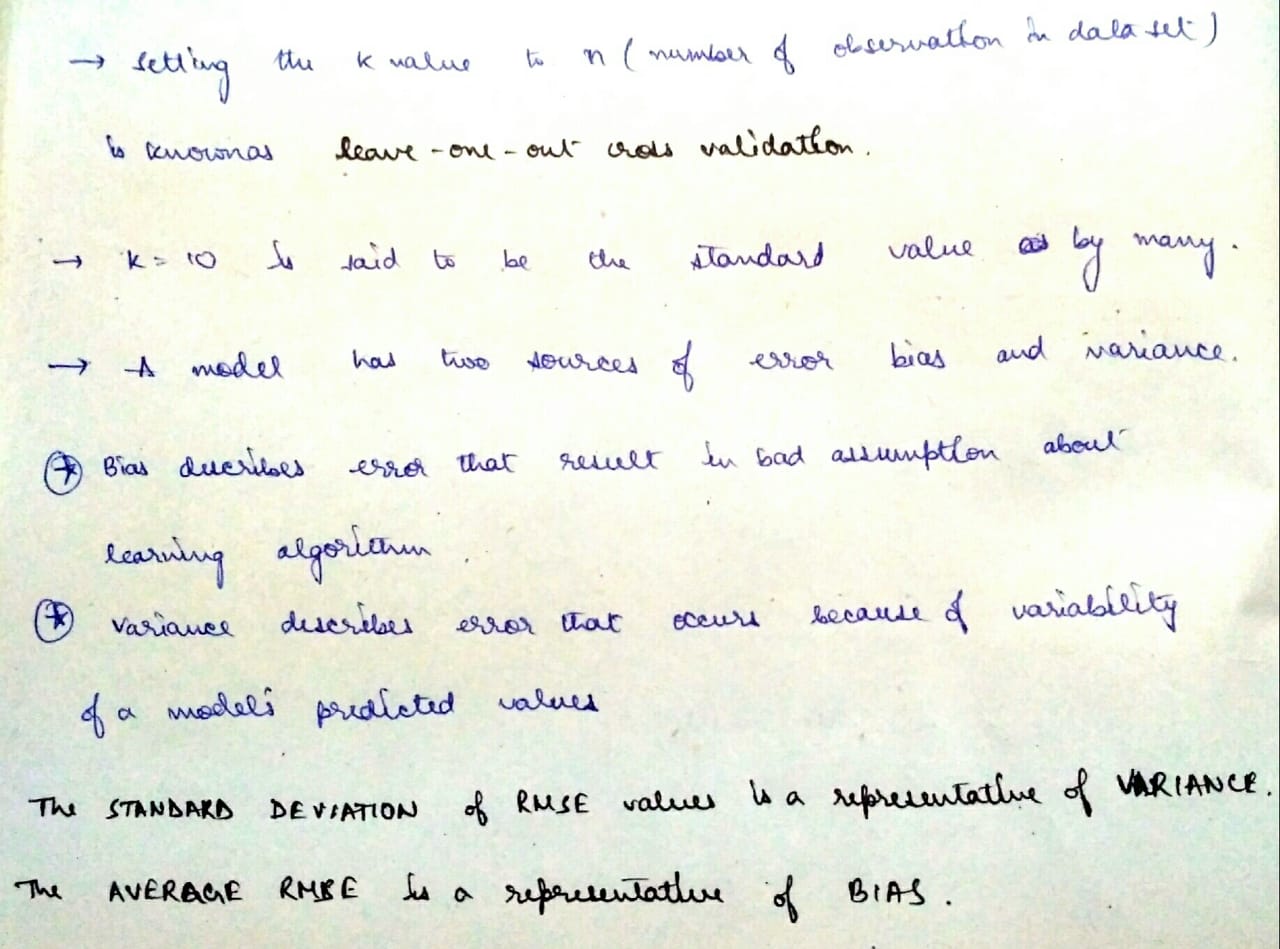 → setting the k value to n (number of observation in data set)
is known as leave-one-out cross validation.
→ k = 10 is said to be the standard value by many.
→ A model has two sources of error bias and variance.
* Bias describes error that result in bad assumption about
learning algorithm.
* variance describes error that occurs because of variability
of a model's predicted values
The STANDARD DEVIATION of RMSE values is a representative of VARIANCE.
The AVERAGE RMSE is a representative of BIAS.